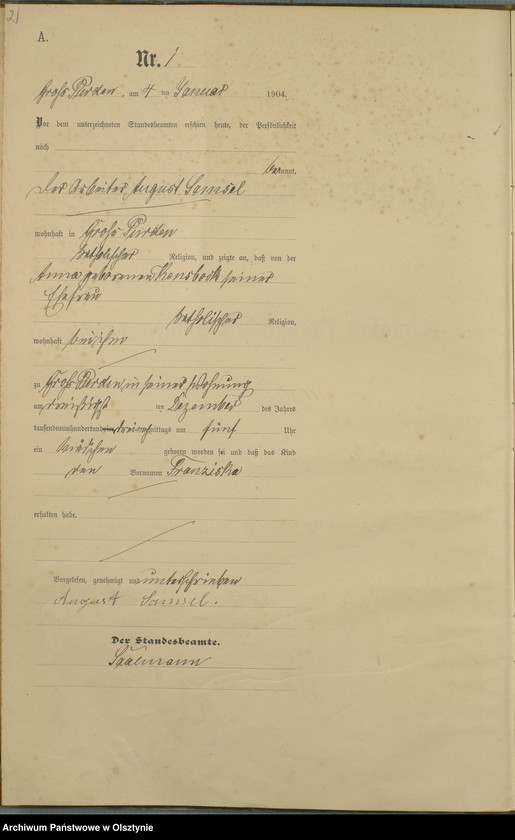 21
A.
Nr. 1
Groß Purden, am 4 ten Januar 1904.
Vor dem unterzeichneten Standesbeamten erschien heute, der Persönlichkeit
nach
bekannt,
der Arbeiter August Samsel
wohnhaft in Groß Purden
katholischer Religion, und zeigte an, daß von der
Anna geborenen seiner
Ehefrau
katholischer Religion,
wohnhaft bei ihm
zu Groß Purden, in seiner Wohnung
am dreißigst ten Dezember des Jahres
tausendneunhundertund mittags um fünf Uhr
ein Mädchen geboren worden sei und daß das Kind
den Vornamen Franziska
erhalten habe.
Vorgelesen, genehmigt und unterschrieben
August Samsel.
Der Standesbeamte.
Archiwum Państwowe w Olsztynie